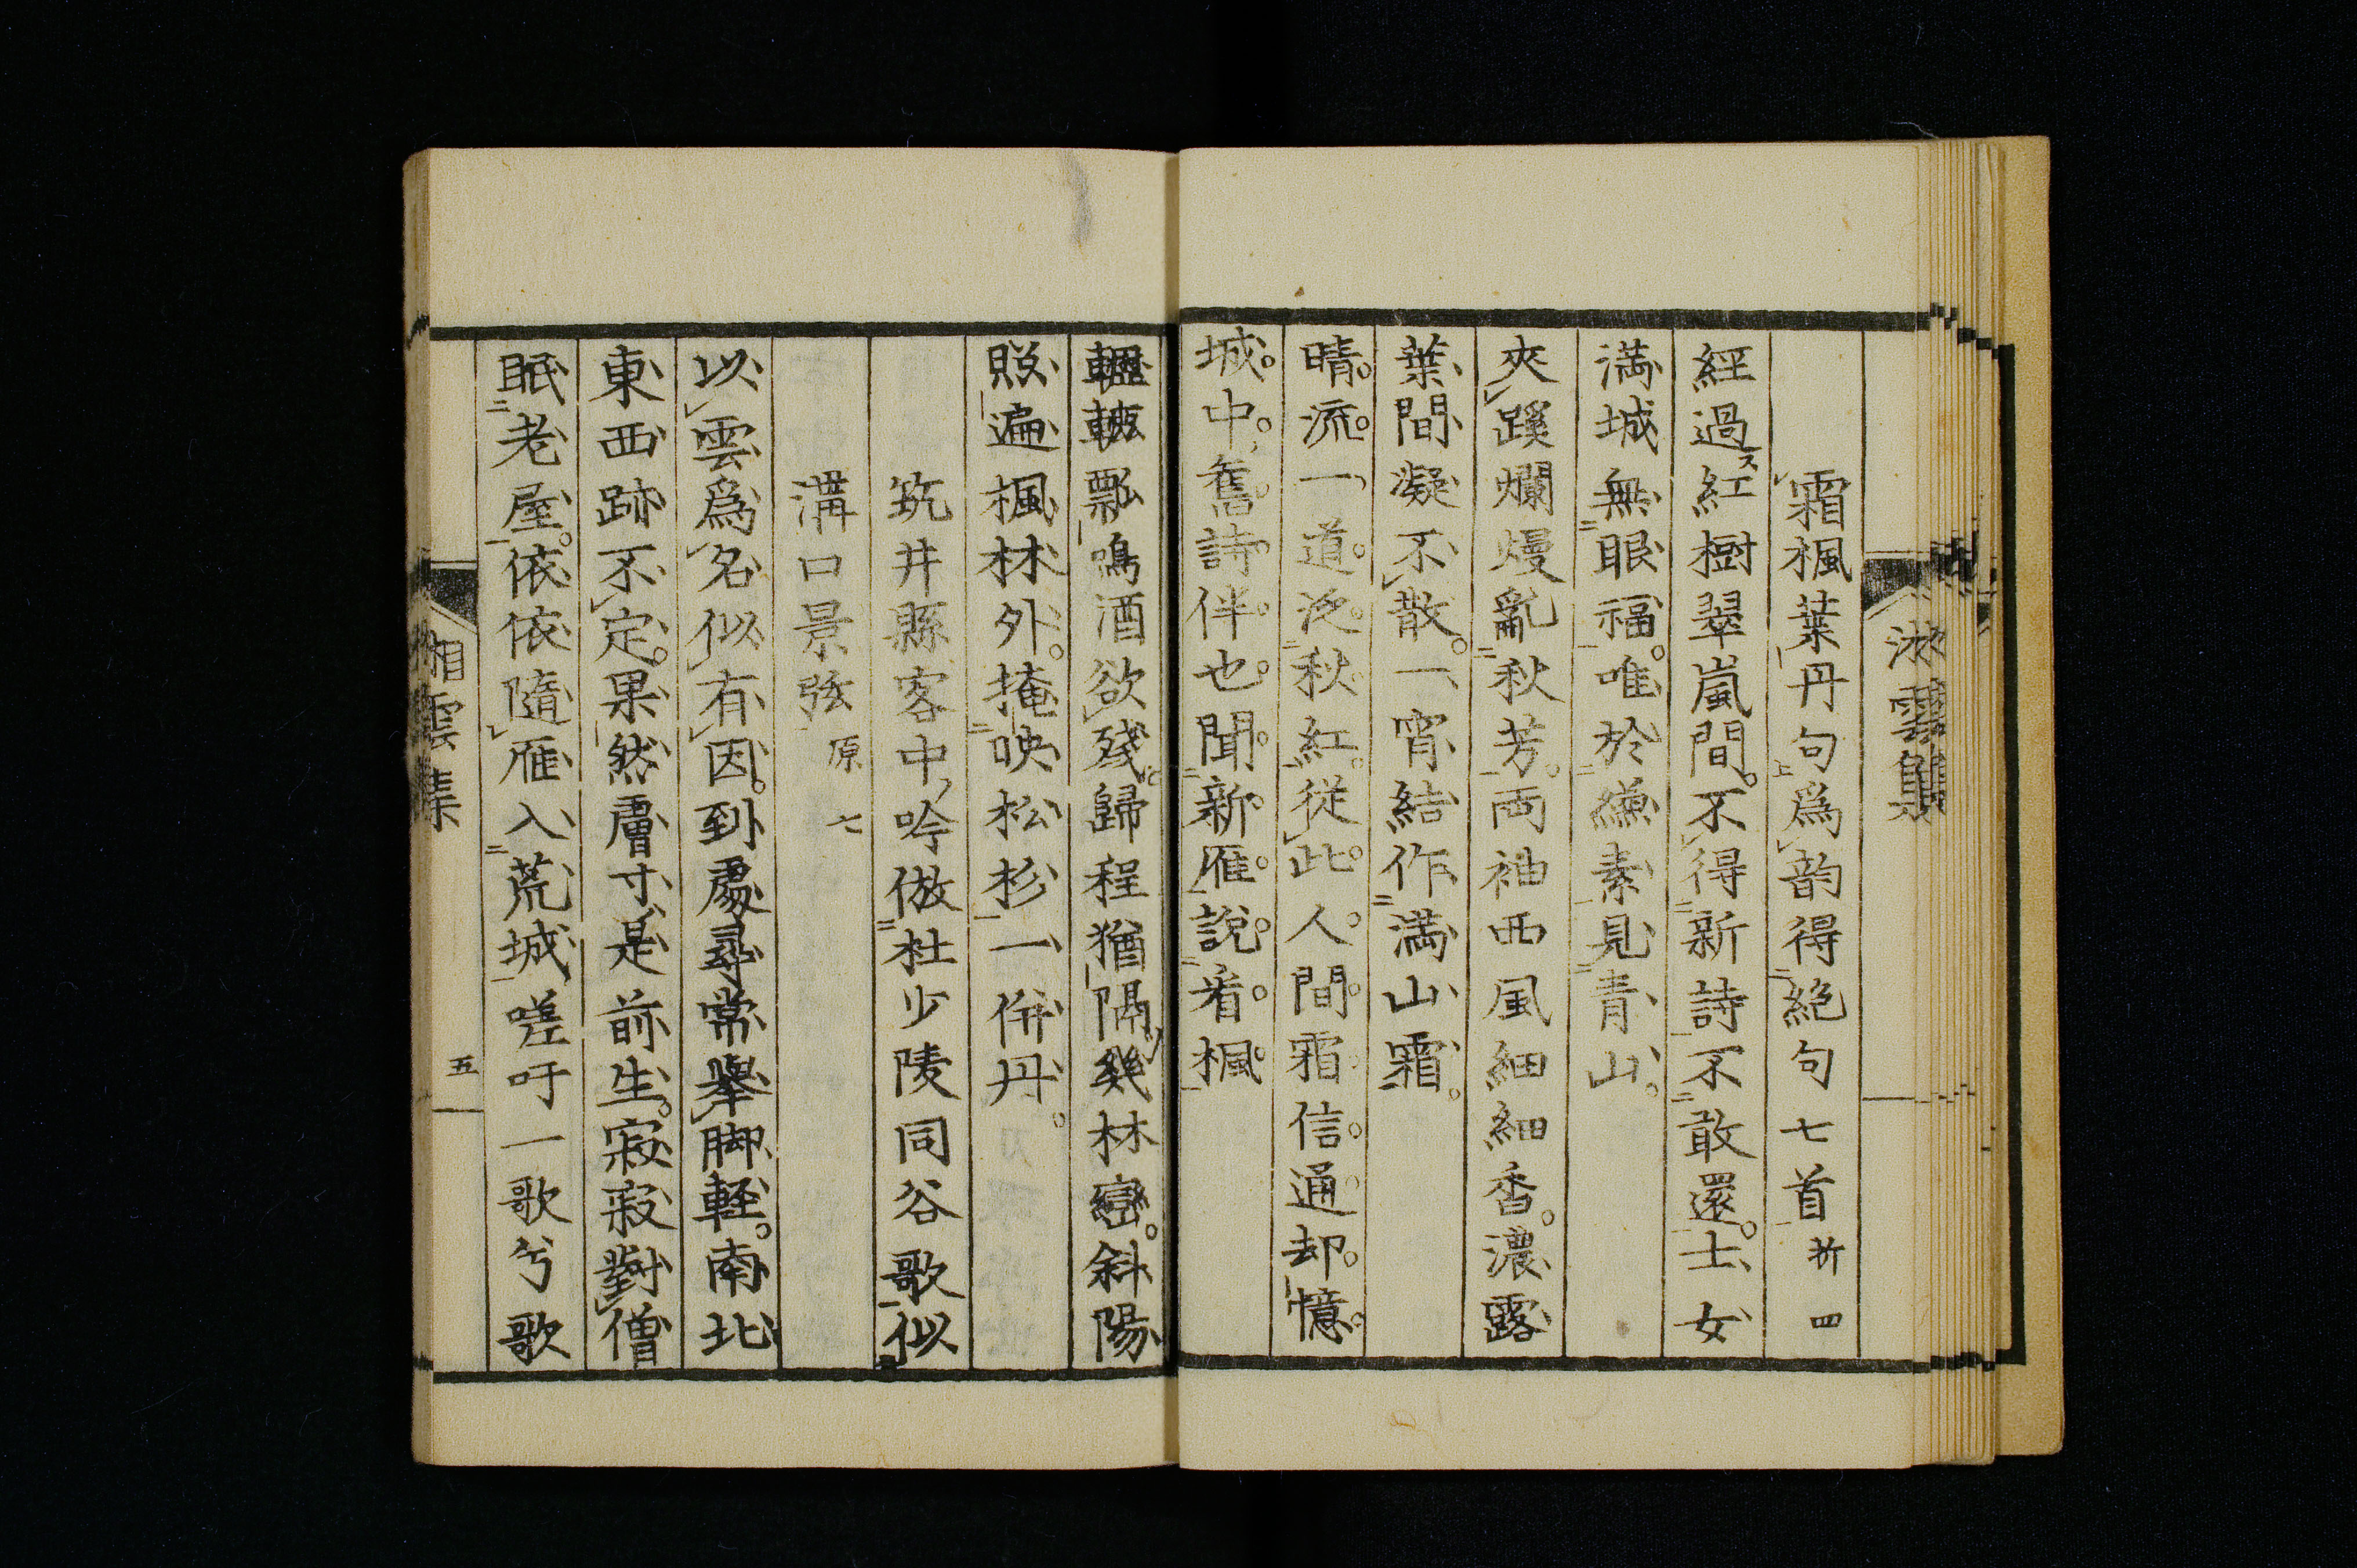 霜楓葉丹句爲韵得絶句七首折四
經過紅樹翠嵐間。不得新詩不敢還。士女
滿城無眼福。唯於縑素見青山。
夾蹊爛熳亂秋芳。両袖西風細細香。濃露
葉間凝不散。一宵結作滿山霜。
晴流。一道泛秋紅。從此人間霜信通。却憶
城中舊詩伴也聞新雁說看楓
轣轆瓢鳴酒欲殘。歸程猶隔幾林巒。斜陽
照遍楓林外。掩映松杉一併丹。
筑井縣客中吟倣杜少陵同谷歌似
溝口景弦 原七
以雲爲名似有因。到處尋常擧脚軽。南北
東西跡不定。果然膚寸是前生。寂寂對僧
眠老屋。依依隨雁入荒城嗟吁一歌兮歌
湘雲集
五